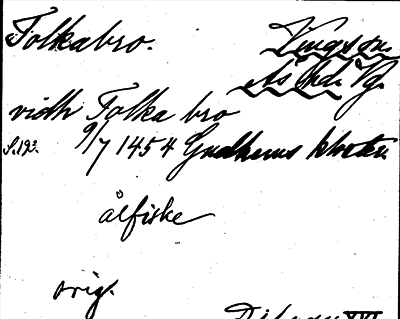 Folkabro. Vings sn.
Ås hd. Vg.
vidh Folka bro
S. 123. 9/7 1454 Gudhems kloster
ålfiske
orig.
XVI